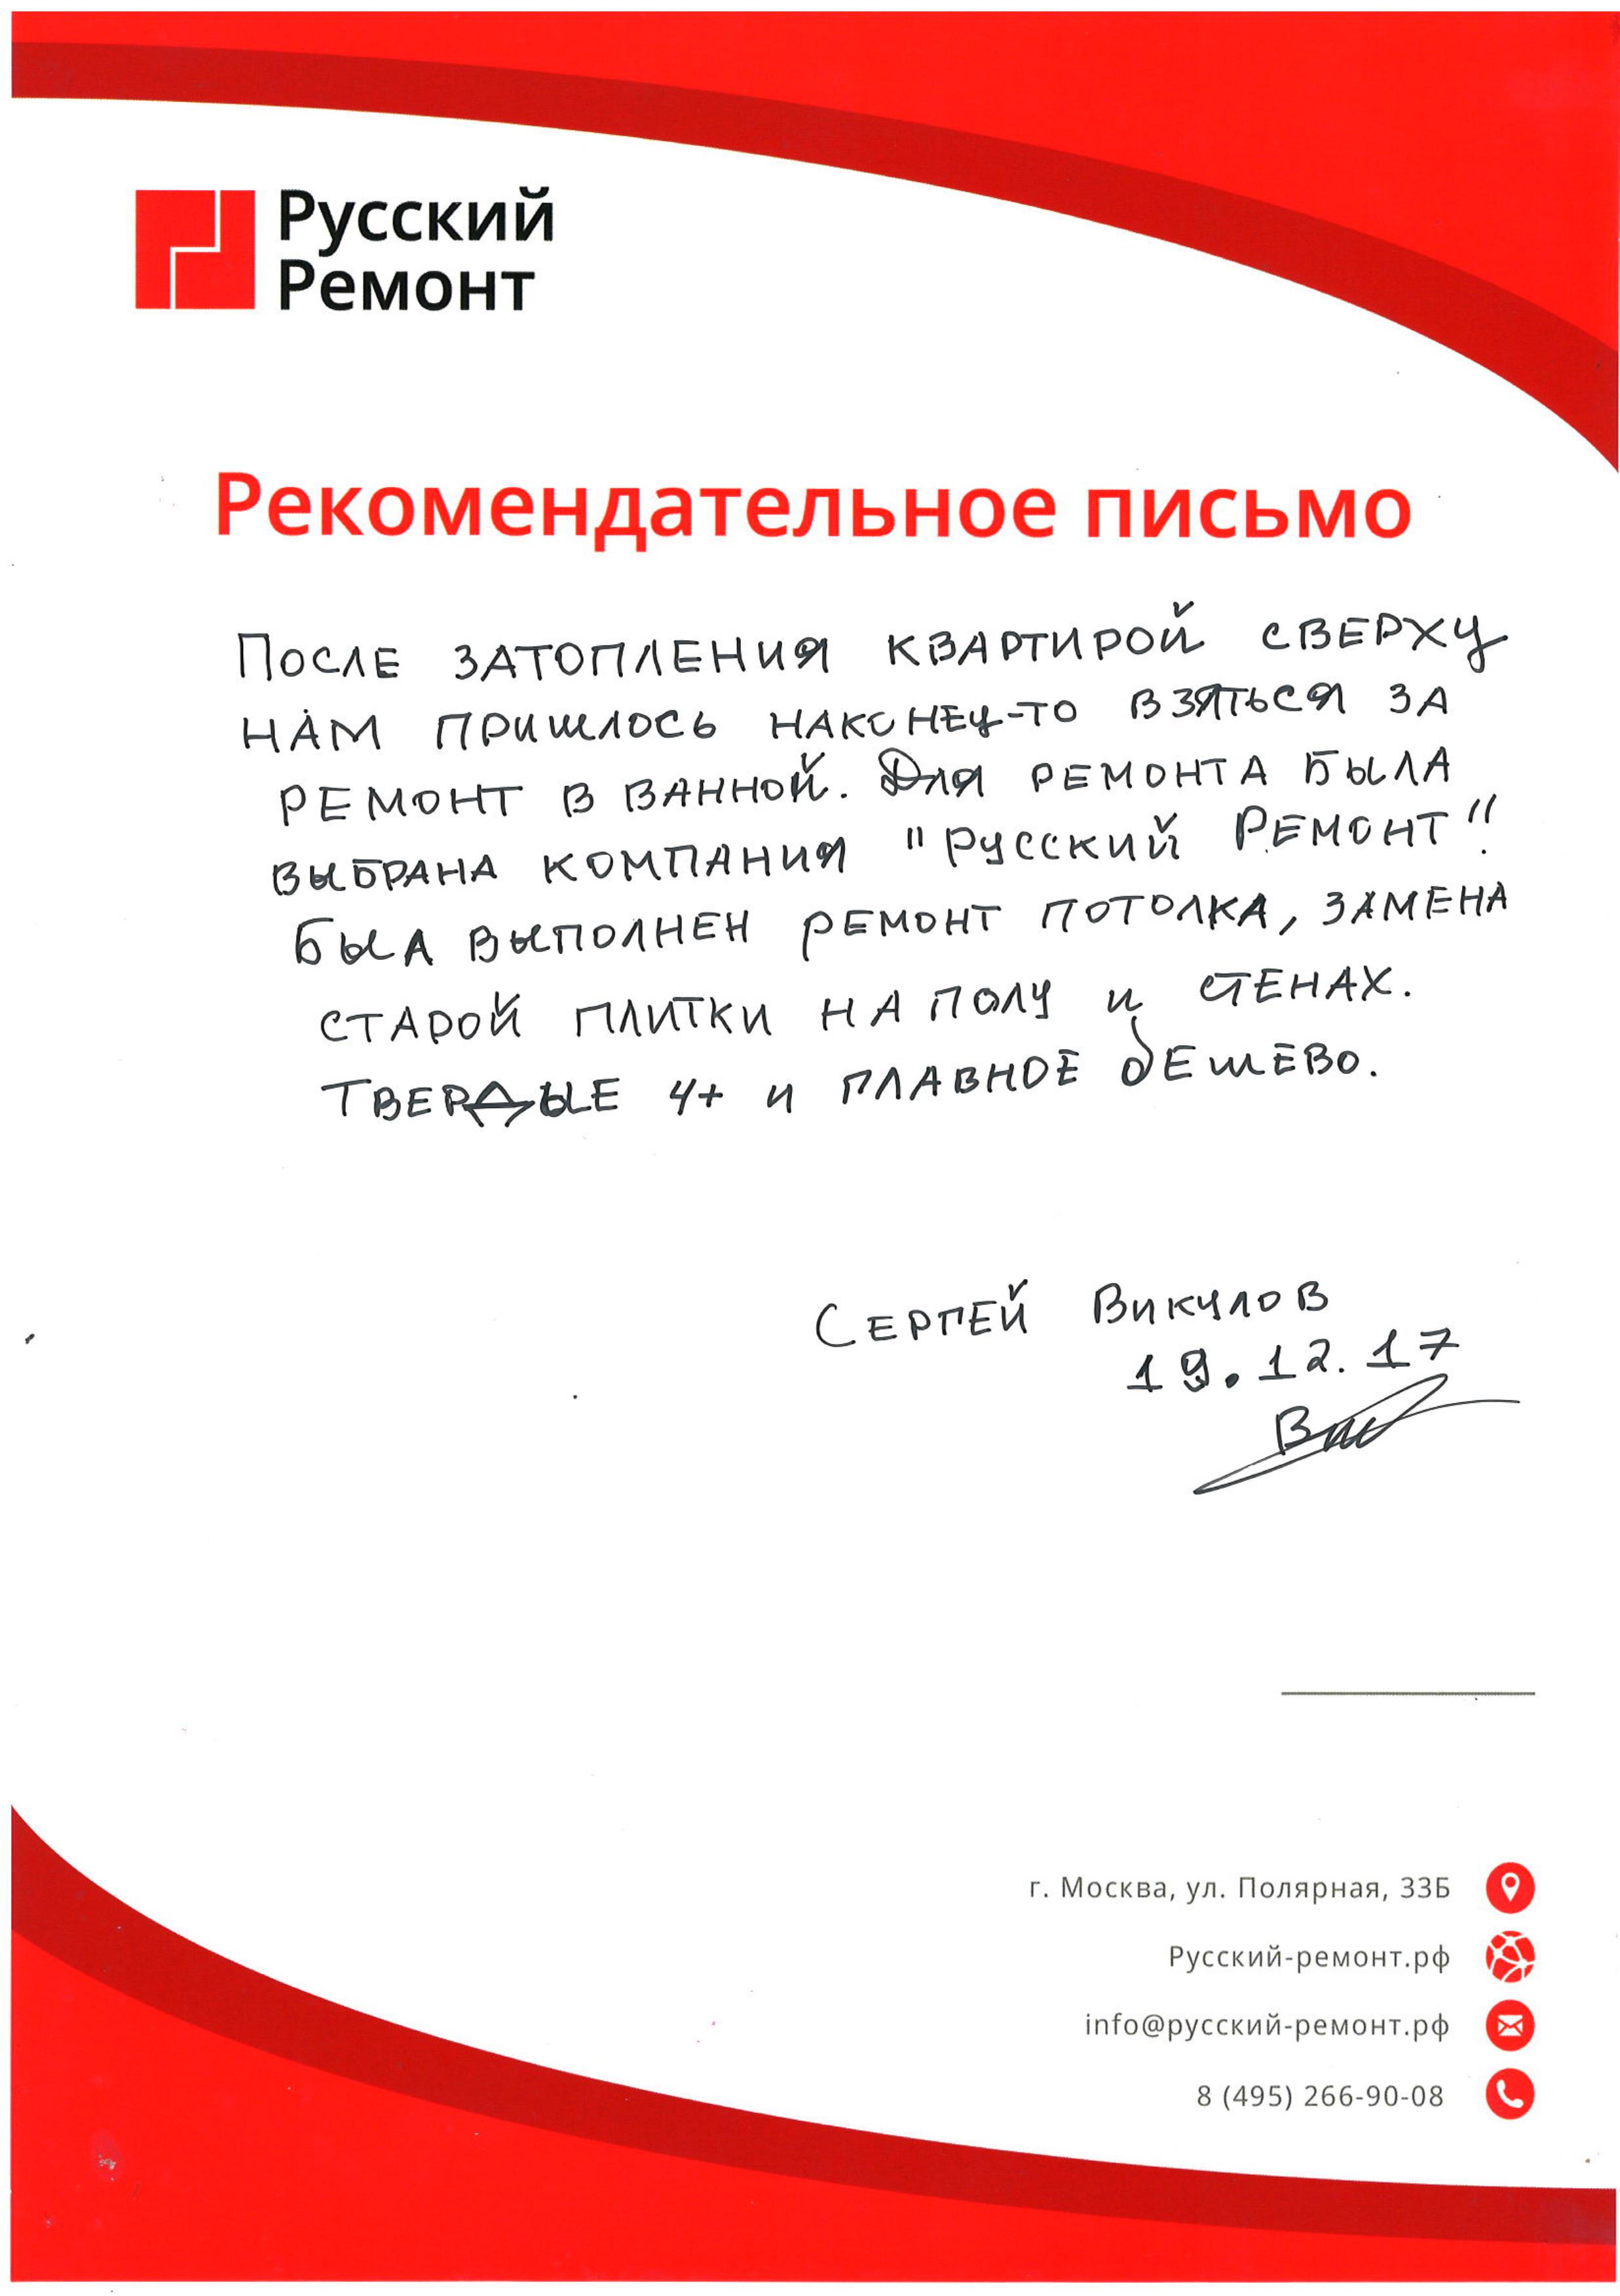 Русский
Ремонт
Рекомендательное письмо
После затопления квартирой сверху
нам пришлось наконец-то взяться за
ремонт в ванной. Для ремонта была
выбрана компания "Русский Ремонт".
Был выполнен ремонт потолка, замена
старой плитки на полу и стенах.
Твердые 4+ и главное дешево.
Сергей Викулов
19.12.17
г. Москва, ул. Полярная, 33Б
Русский-ремонт.рф
info@русский-ремонт.рф
8 (495) 266-90-08